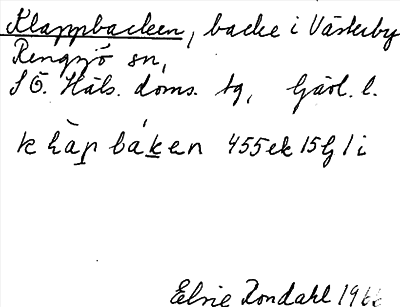 Klappbacken, backe i Västerby
Rengsjö sn,
SÖ. Häls. doms. tg, Gävl. l.
k làp báken 455ek 15 G 1 i
Elsie Rondahl 1966